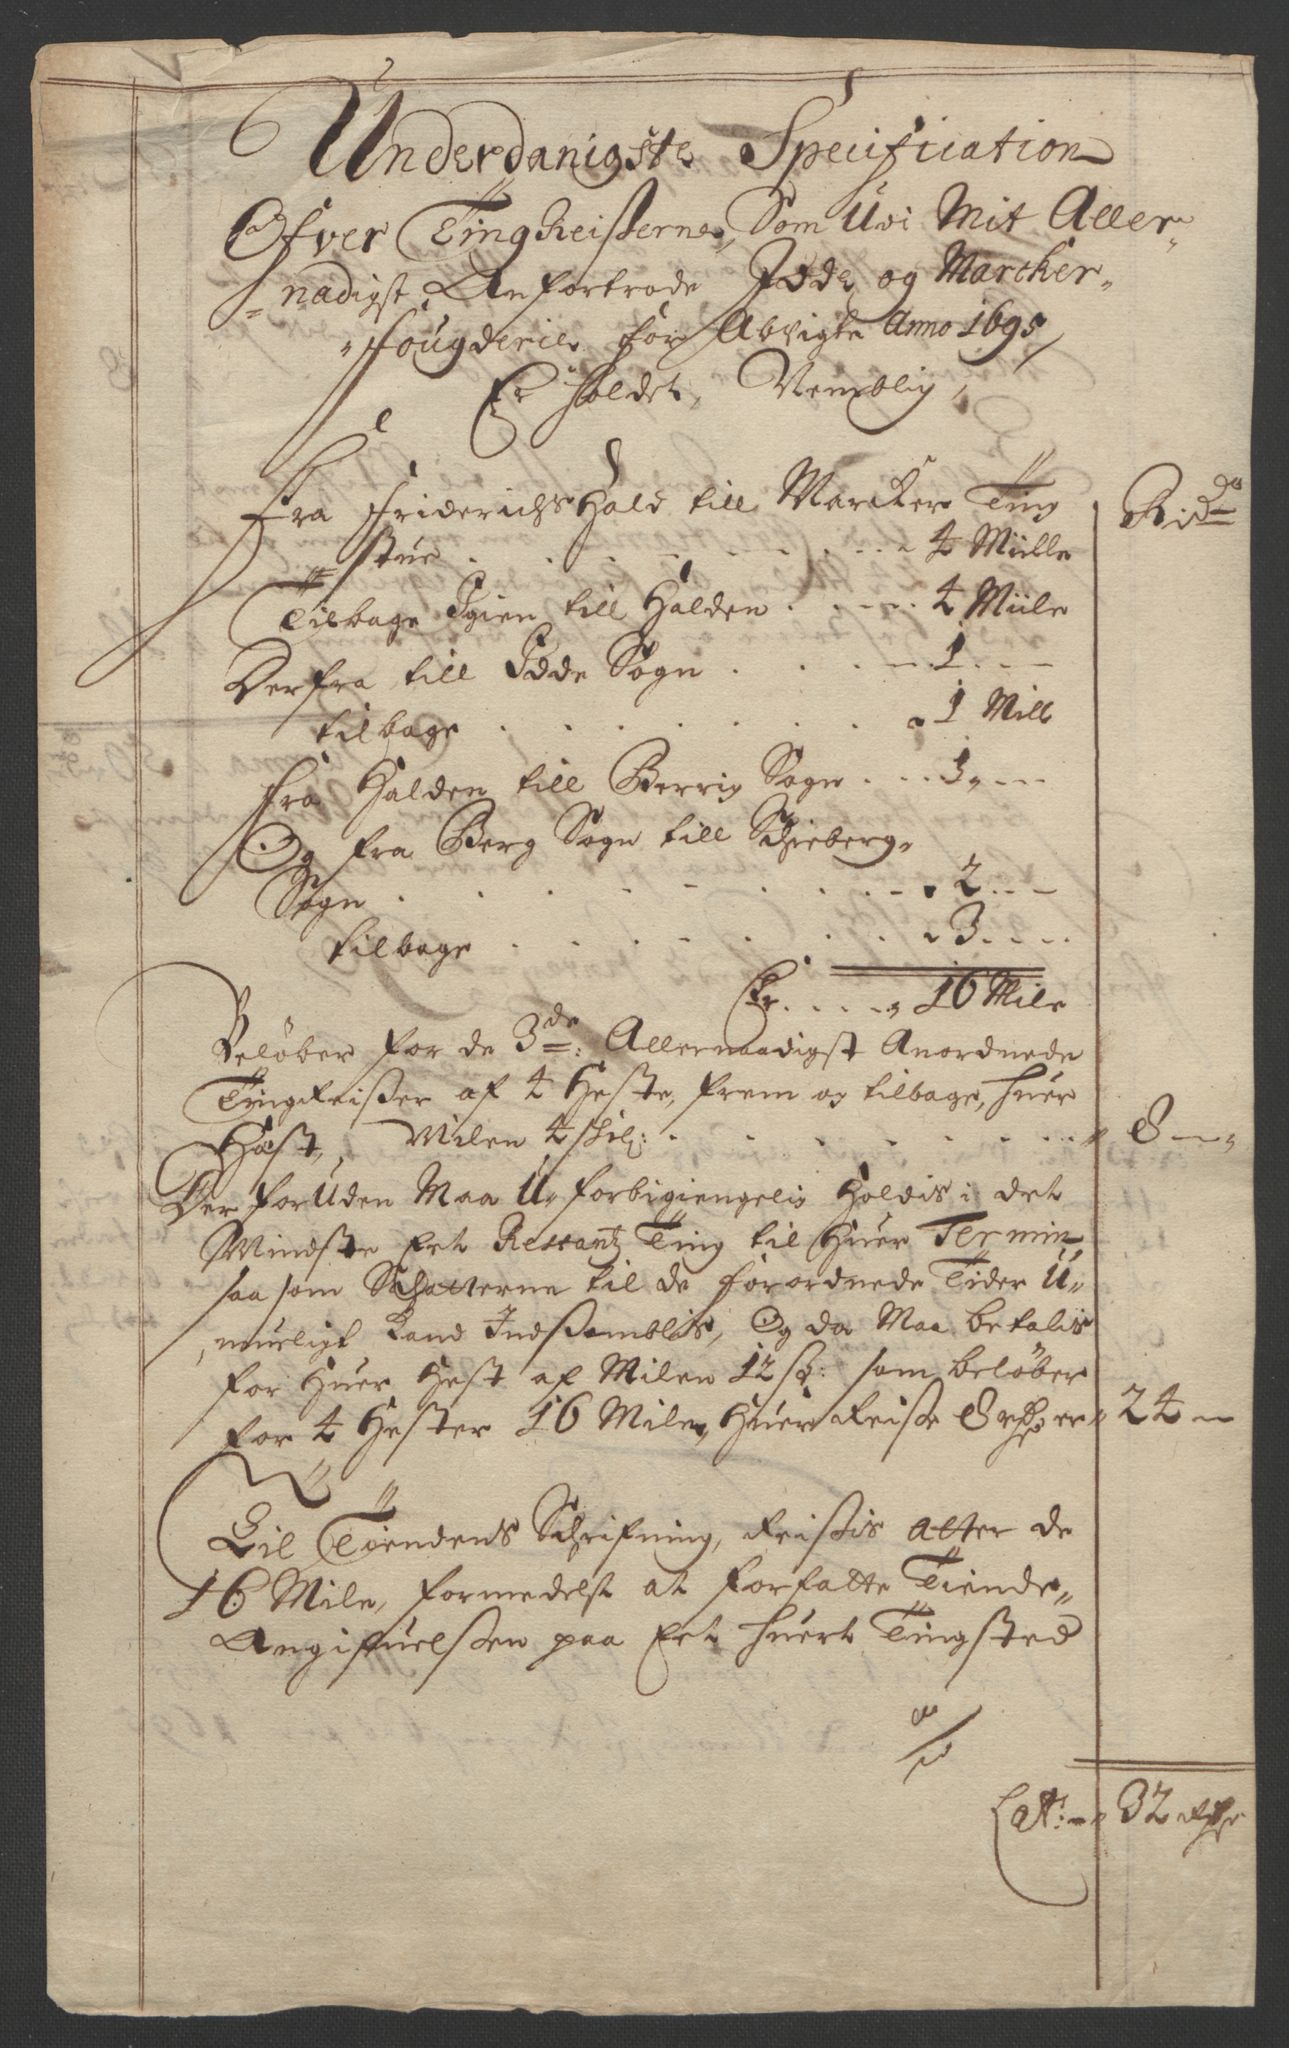 Underdanigste Specification
Ofver Tingreiserne, Som Udi Mit Aller=
=nadigst Anfortrode Idde og Marcker=
=fougderie for Abvigte Anno 1695
Er holdet, Nemblig,
Fra FriderichsHald till Marcker Ting
stue . . . . . 4 Miille
Tilbage Igien till Halden . . . . 4 Miile
Derfra till Idde Sogn . . . . 1 . . .
tilbage . . . . . . 1 Mill
Fra Halden till Berrig Sogn . . . 1 . . .
Og fra Berg Sogn till Schieberg=
Sogn . . . . . . 2 . . .
tilbage . . . . . . 3 . . .
Er . . . . 16 Mile
Beløber for de 3de: Allernaadigst Anordnede
Tingreisser af 4 Heste, frem og tilbage, huer
Hæst, Milen 4 schil: . . . . . 8 — "
Der forUden Maa U=forbigiengelig Holdis i det
Mindste Eet Restantz Ting til Huer Termin,
saa som Schatterne til de forordnede Tider U=
=mueligt Kand Indsamblis, Og da Maa betalis
for Huer Hest af Milen 12 sk: som beløber
for 4 Hester 16 Mile, Huer Reise 8 rdr er " 24 —
Til Tiendens Schrifning, Reissis atter de
16 Mile, formedelst at forfatte Tiende=
Angifuelssen paa Eet huert Tingsted
Lat: — " 32 rdr